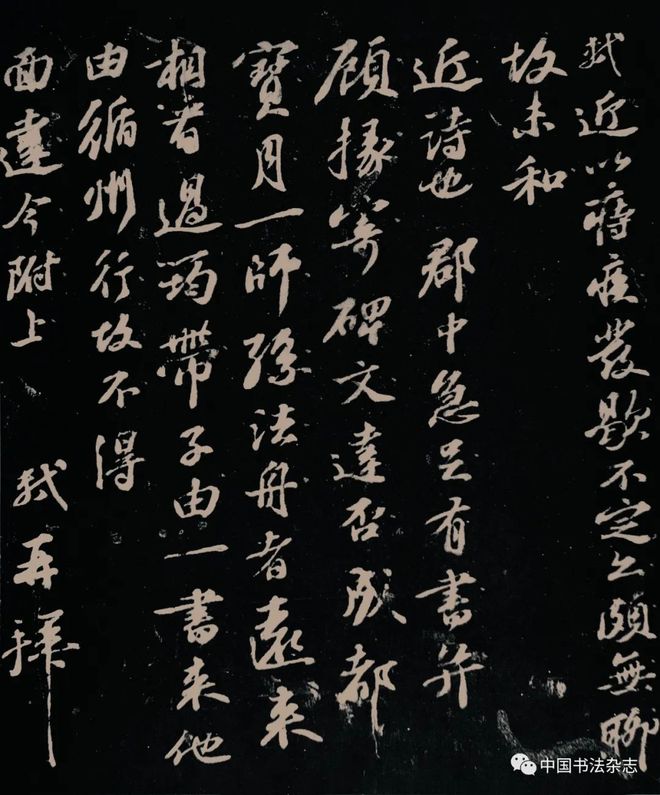 軾近以痔疾發歇不定亦頗無聊
故未和
近詩也郡中急足有書并
顧掾寄碑文達否成都
寶月一師孫法舟者遠來
相看過筠帶子由一書來他
由循州行故不得
面達今附上 軾再拜
中国书法杂志